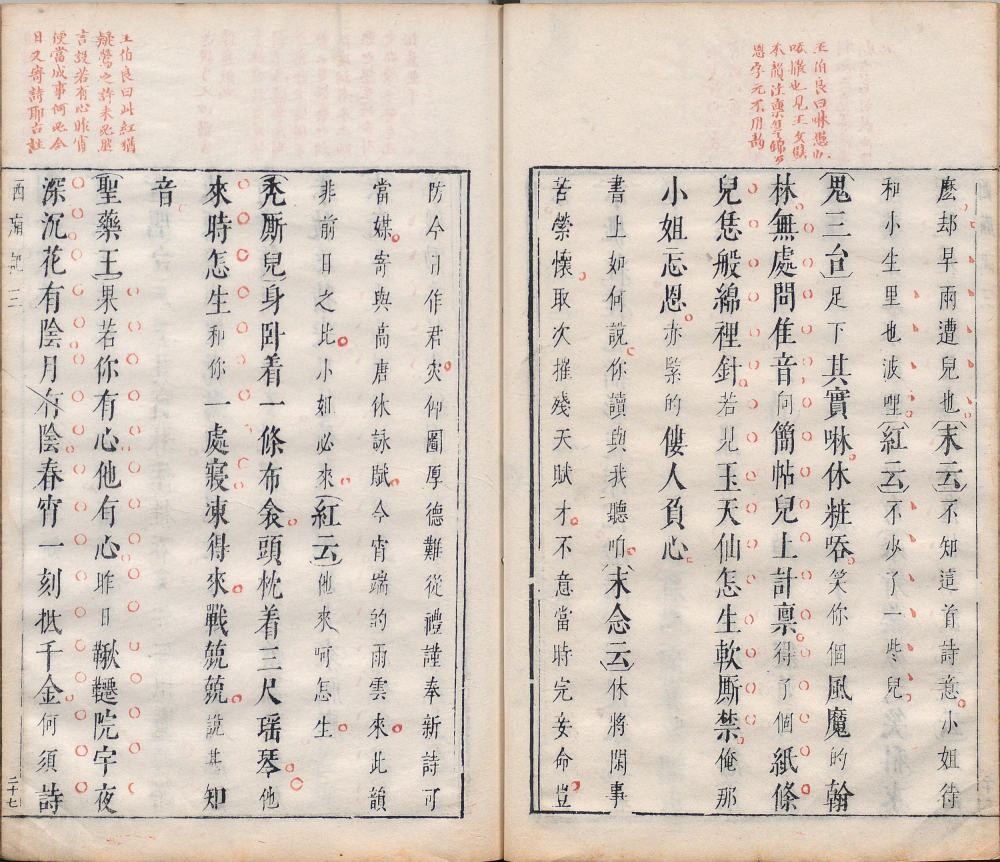 王伯良曰啉愚也
唓㗫也見王文
本韻注稟
恩字元不用韵
麼却早雨遭兒也(末云)不知這首詩意小姐待
和小生里也波哩(紅云)不少了一些兒
(鬼三台)足下其實啉休粧唔笑你個風魔的翰
林無處問佳音向簡帖兒上計稟得了個紙條
兒恁般綿裡針若見玉天仙怎生軟厮禁俺那
小姐忘恩亦緊的僂人負心
書上如何說你讀與我聽咱(末念云)休將閑事
苦縈懷取次摧殘天賦才不意當時完妾命豈
王伯良曰此紅猶
疑鶯之許未必然
言設若有心昨宵
便當成事何必今
日又寄詩耶古註
防今日作君灾仰圖厚德難從禮謹奉新詩可
當媒寄與高唐休詠賦今宵端的雨雲來此韻
非前日之比小姐必來(紅云)他來呵怎生
(禿厮兒)身卧着一條布衾頭枕着三尺瑶琴他
來時怎生和你一處寢凍得來戰兢兢說甚知
音
(聖藥王)果若你有心他有心昨日鞦韆院宇夜
深沉花有陰月有陰春宵一刻抵千金何須詩
西廂記三
二十七